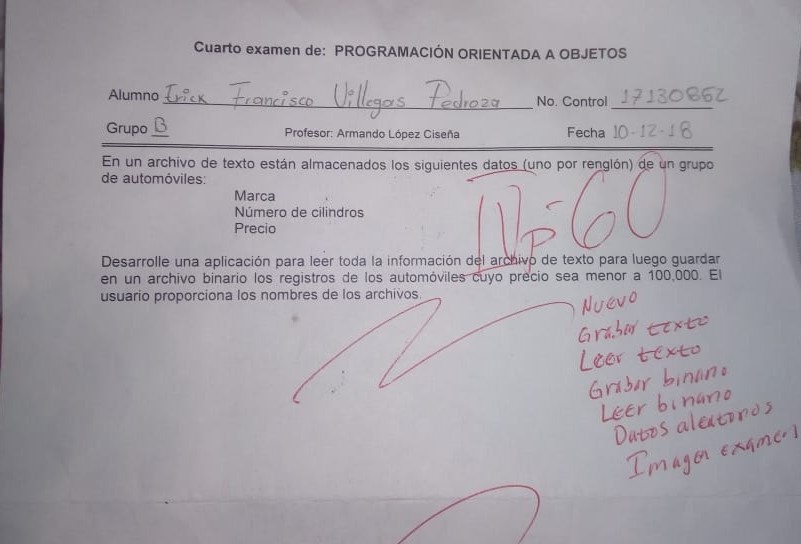 Cuarto examen de: PROGRAMACIÓN ORIENTADA A OBJETOS
Alumno Erick Francisco Villegas Pedroza No. Control 17130862
Grupo B Profesor: Armando López Ciseña Fecha 10-12-18
En un archivo de texto están almacenados los siguientes datos (uno por renglón) de un grupo
de automóviles:
Marca
Número de cilindros
Precio
60
Desarrolle una aplicación para leer toda la información del archivo de texto para luego guardar
en un archivo binario los registros de los automóviles cuyo precio sea menor a 100,000. El
usuario proporciona los nombres de los archivos.
Nuevo
Grabar texto
Leer texto
Grabar binario
Leer binario
Datos aleatorios
Imagen examen